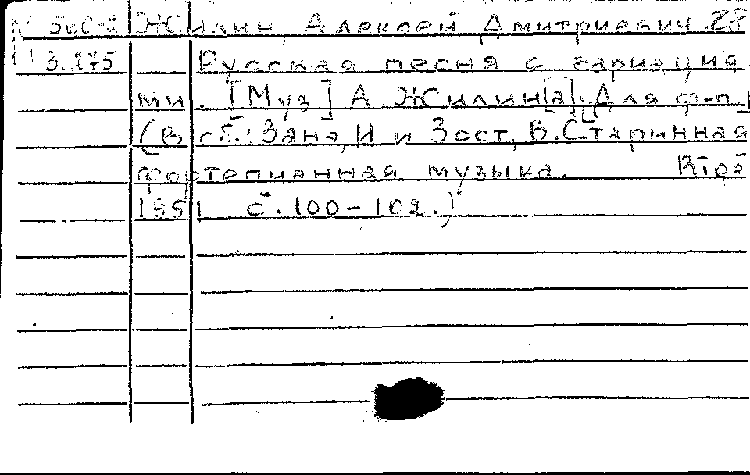 Жилин, Алексей Дмитриевич
3.175 Русская песня с вариация-
ми. [Муз] А Жилин[а]. Для ф-п
(В сб.: Занэ, И и Зост, В. Старинная
фортепианная музыка.
1951 с. 100-102.)